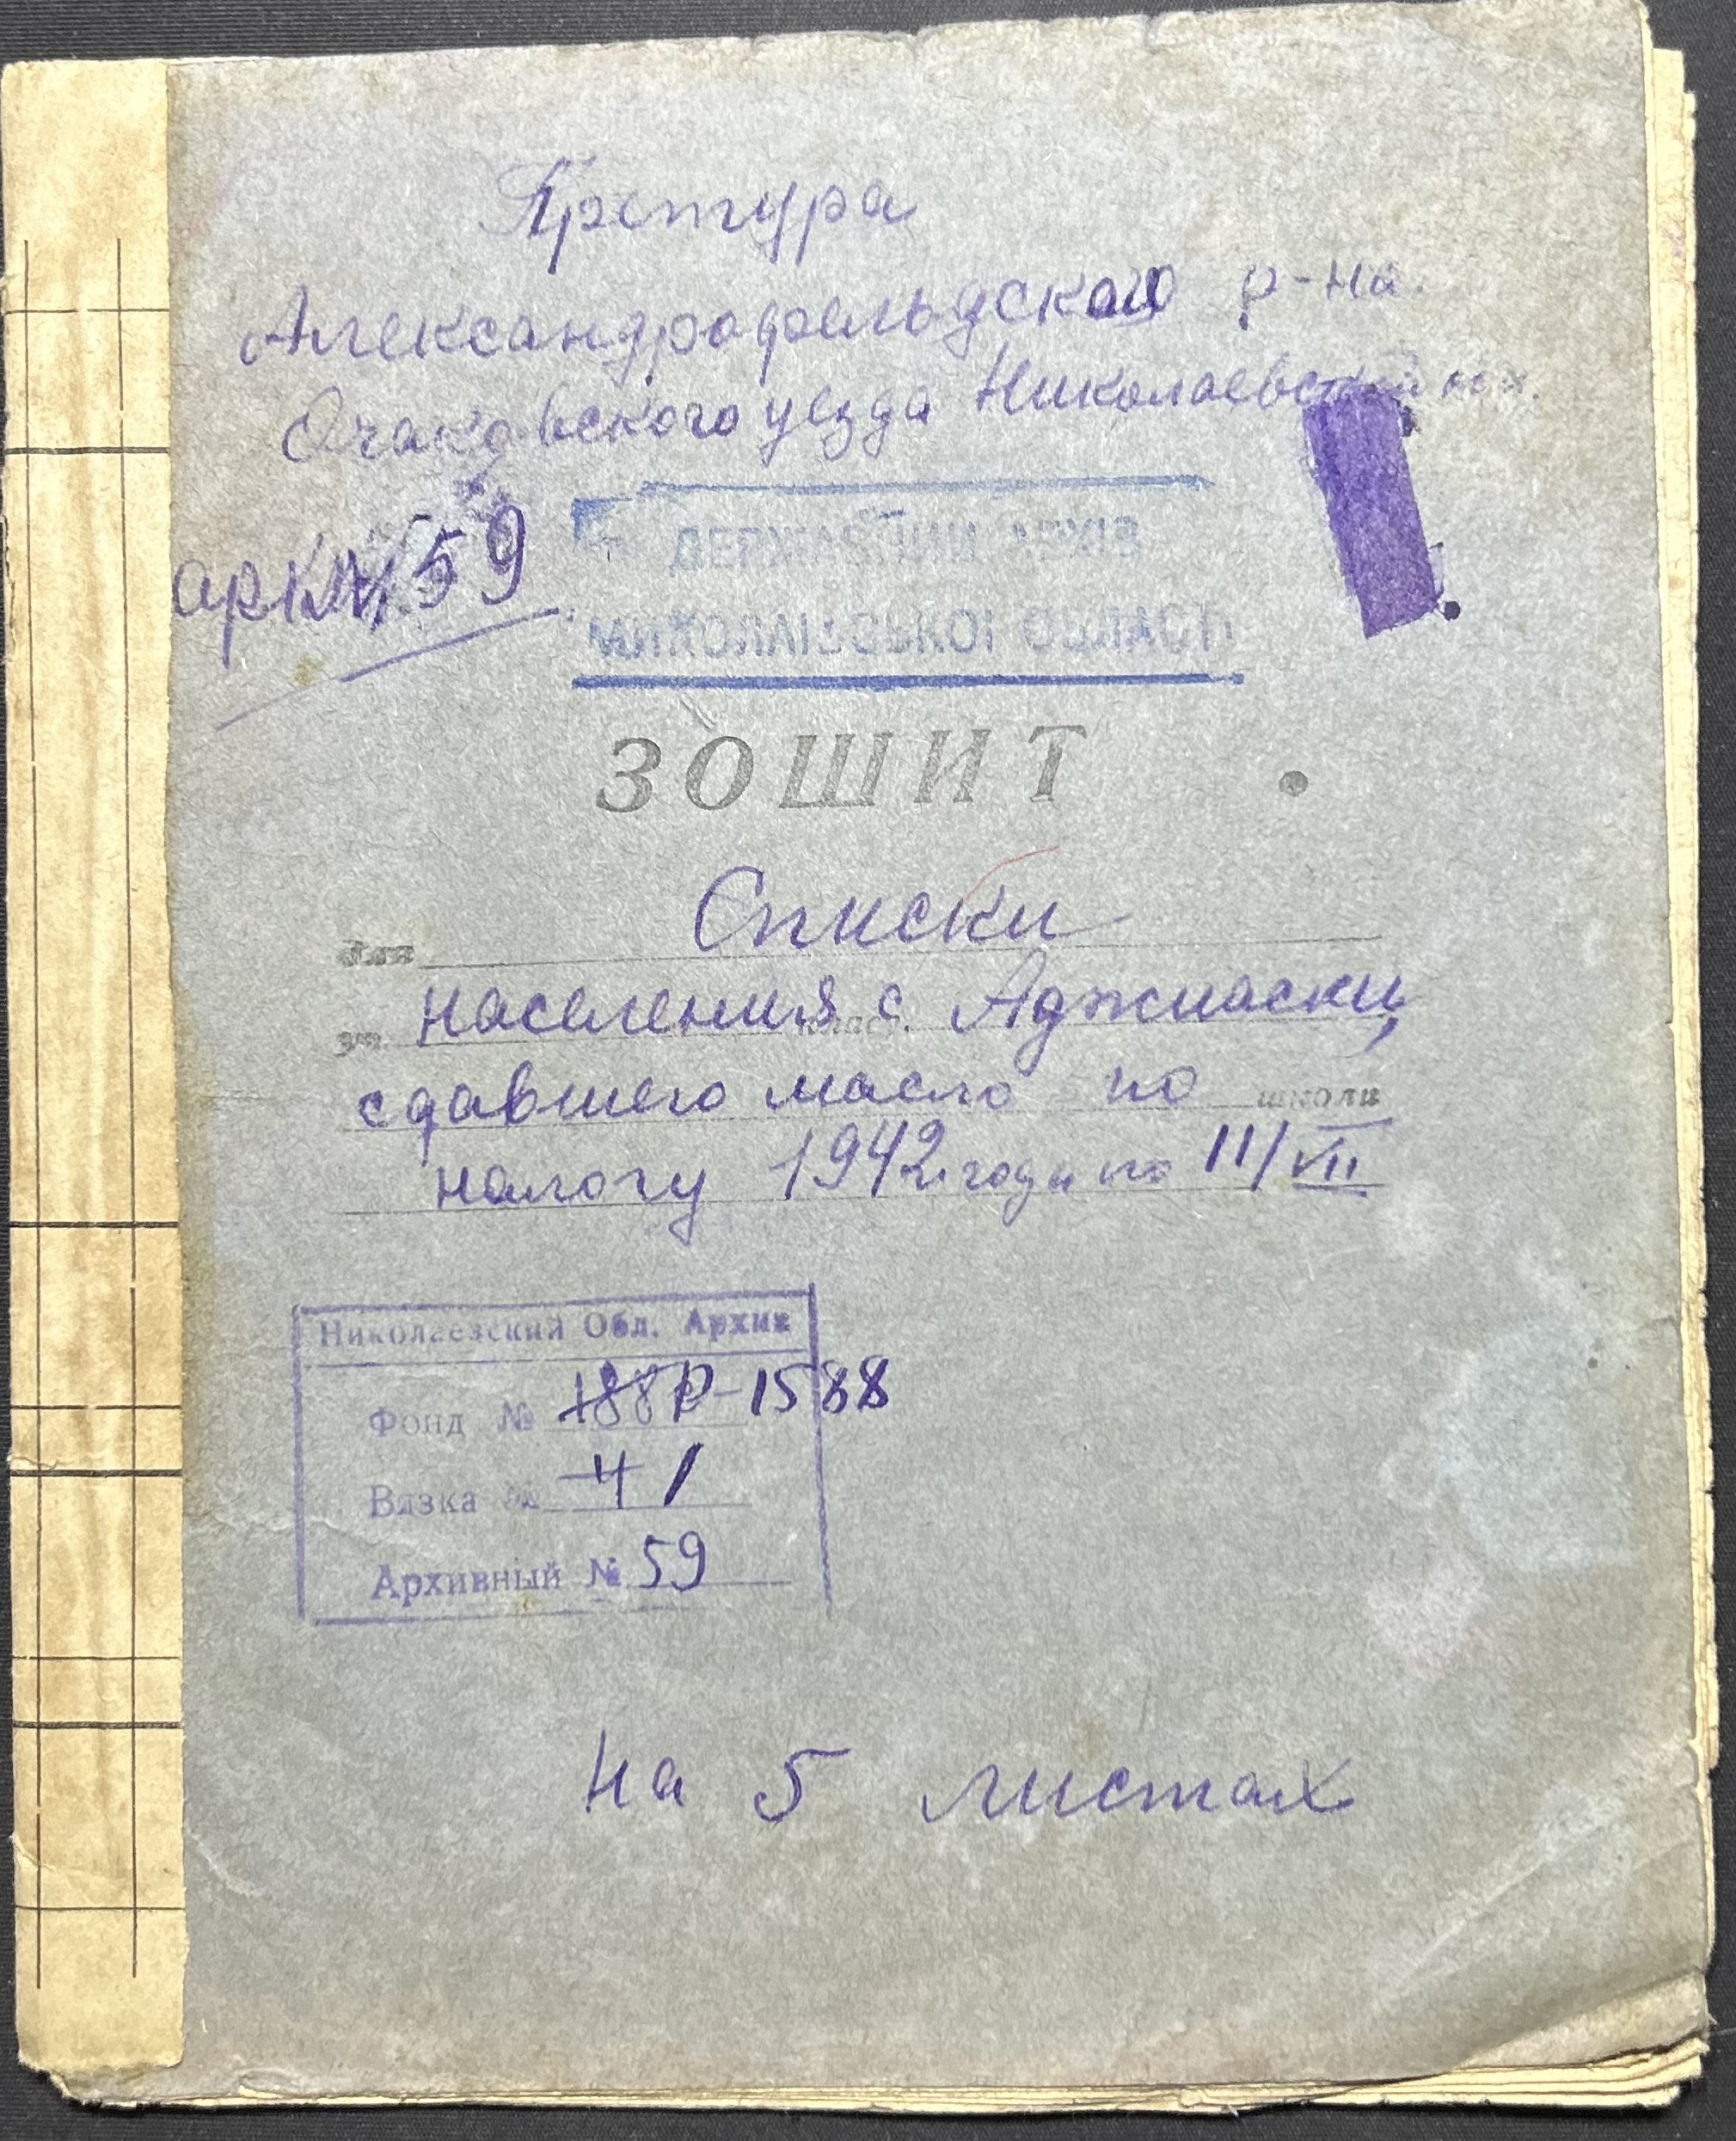 Претура
Александрофельдского р-на
Очаковского уезда Николаевской
арх № 59
ДЕРЖАВНИЙ АРХІВ
МИКОЛАЇВСЬКОЇ ОБЛАСТІ
ЗОШИТ
для Списки
уч. населения с Аджиаски, клас.
сдавшего масло по школи
налогу 1942 года по 11/VII
Николаевский Обл. Архив
Фонд № 188 Р-1588
Вязка № 4 1
Архивный № 59
на 5 листах